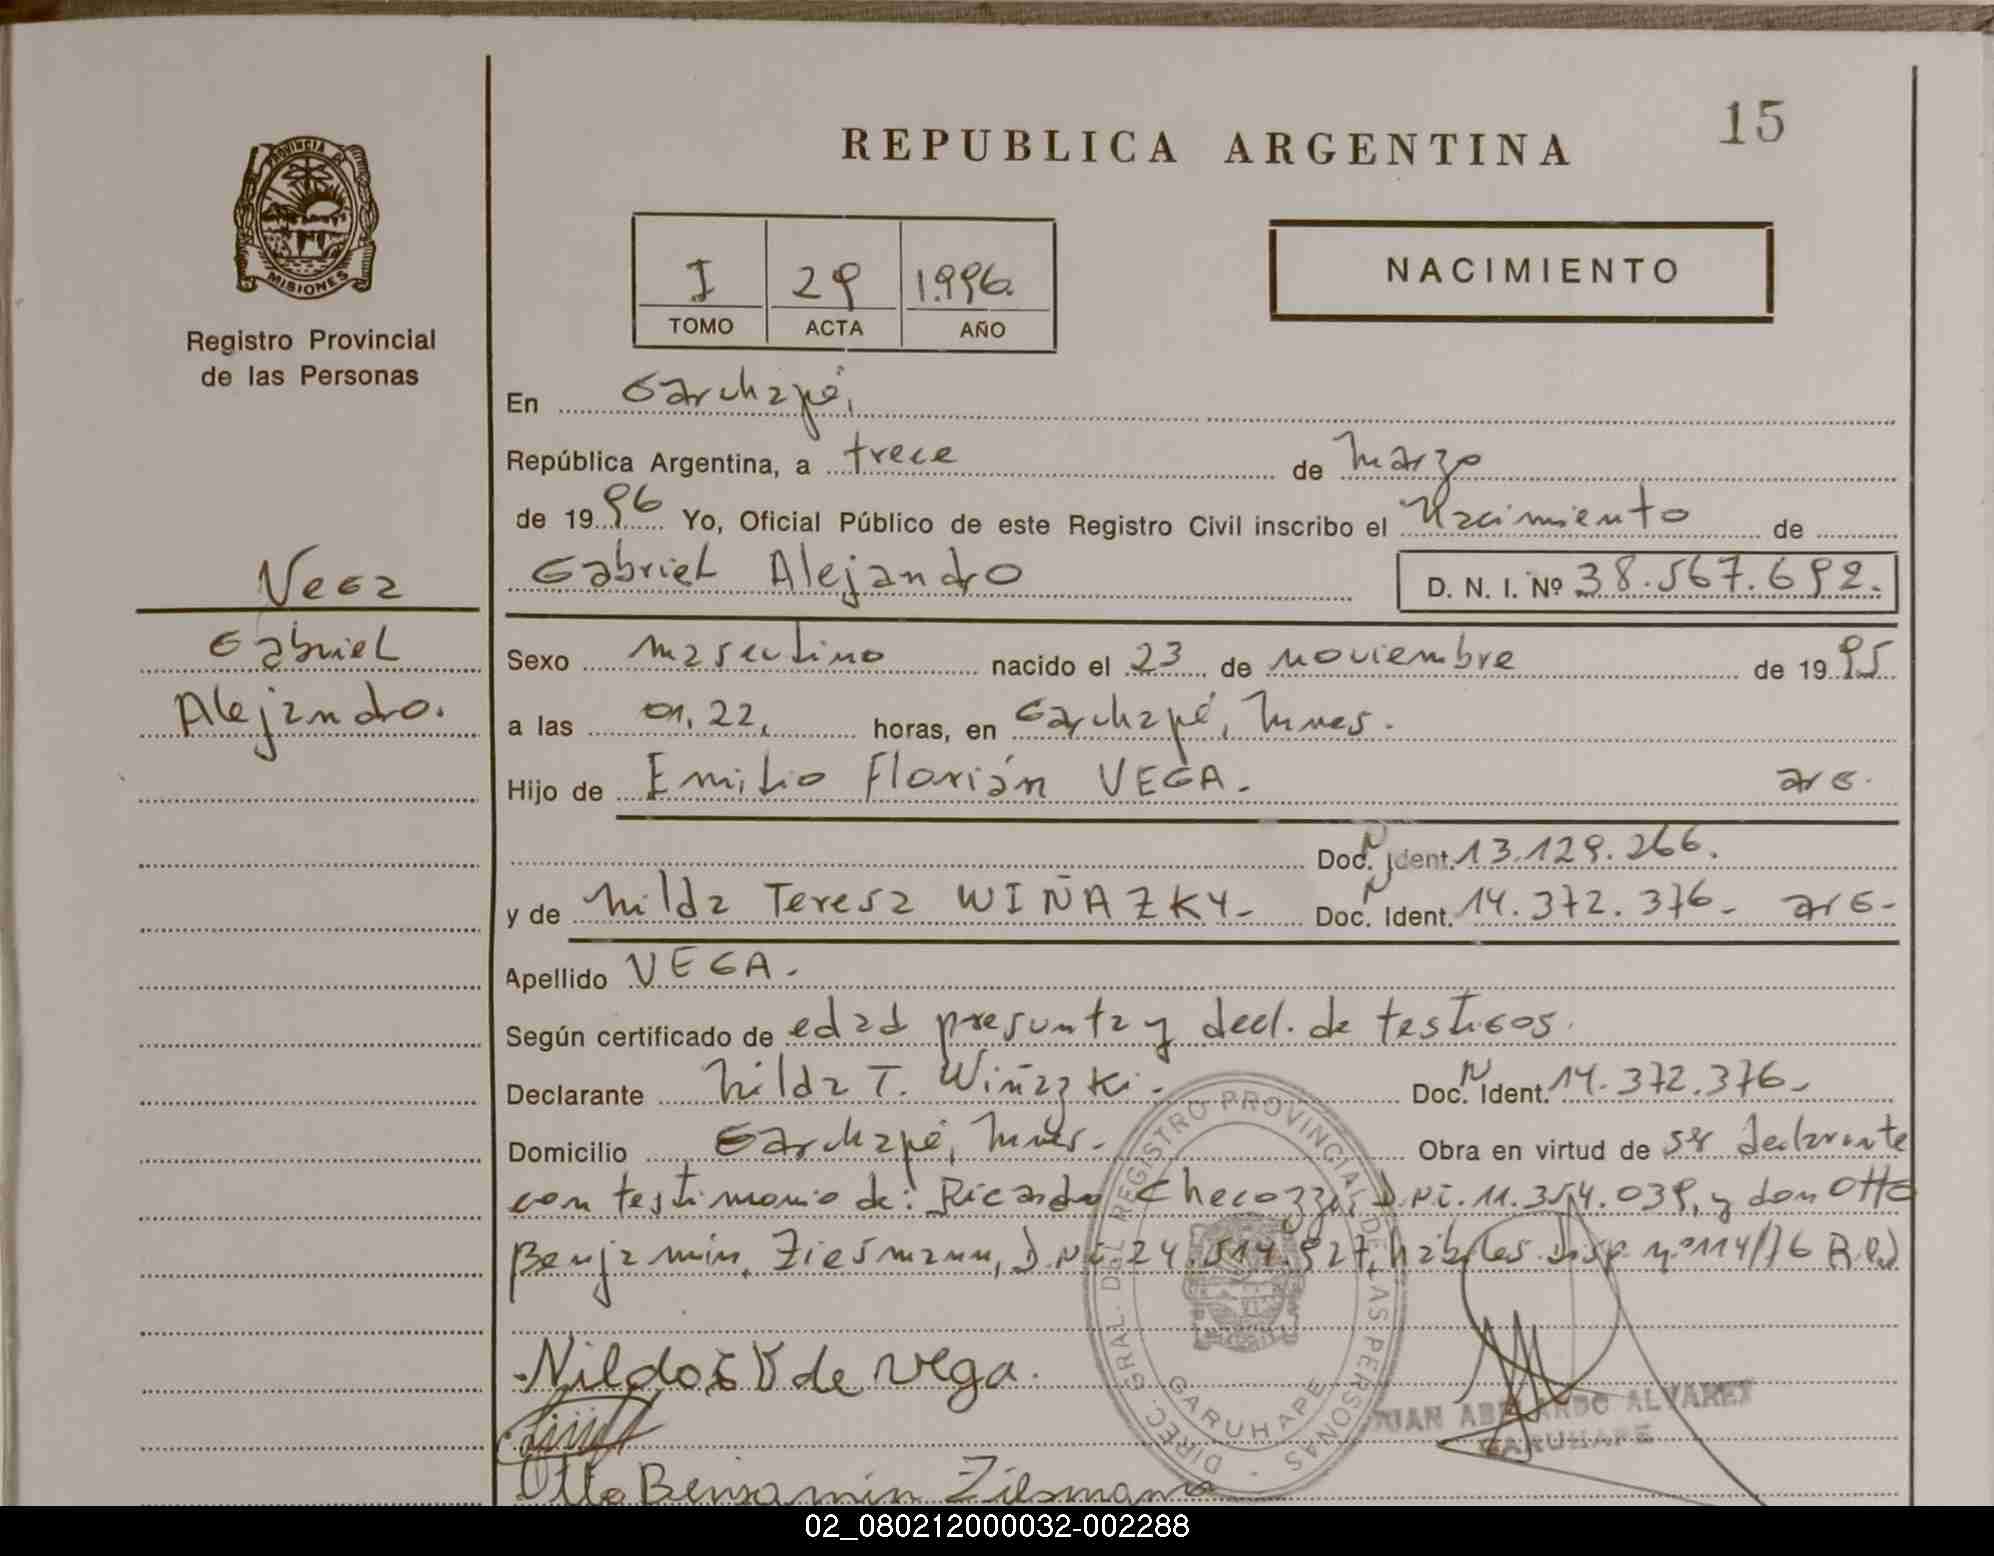 15
REPUBLICA ARGENTINA
PROVINCIA DE
MISIONES
Registro Provincial
de las Personas
I 29 1.996.
TOMO ACTA AÑO
NACIMIENTO
En Garuhapé,
República Argentina, a trece de Marzo
de 1996 Yo, Oficial Público de este Registro Civil inscribo el Nacimiento de
Gabriel Alejandro D. N. I. Nº 38.567.692.
Vega
Gabriel
Alejandro.
Sexo masculino nacido el 23 de noviembre de 1995
a las 01,22, horas, en Garuhapé, Mnes.
Hijo de Emilio Florián VEGA. arg.
Doc. Ident. 13.129.266.
y de Nilda Teresa WIÑAZKY- Doc. Ident. 14.372.376- arg-
Apellido VEGA.
Según certificado de edad presunta y decl. de testigos.
Declarante Nilda T. Wiñazki. Doc. Ident. 14.372.376-
Domicilio Garuhapé, Mnes.- Obra en virtud de ser declarante
con testimonio de: Ricardo Checozzi, D.NI. 11.354.039, y don Otto
Benjamin, Ziesmann, D.NI. 24.514.927, hábiles Disp. Nº 114/76 R.P.
DIREC. GRAL. DEL REGISTRO PROVINCIAL DE LAS PERSONAS
GARUHAPE
Nilda de Vega.
JUAN ABELARDO ALVAREZ
GARUHAPE
Otto Benjamin Ziesmann
02_080212000032-002288